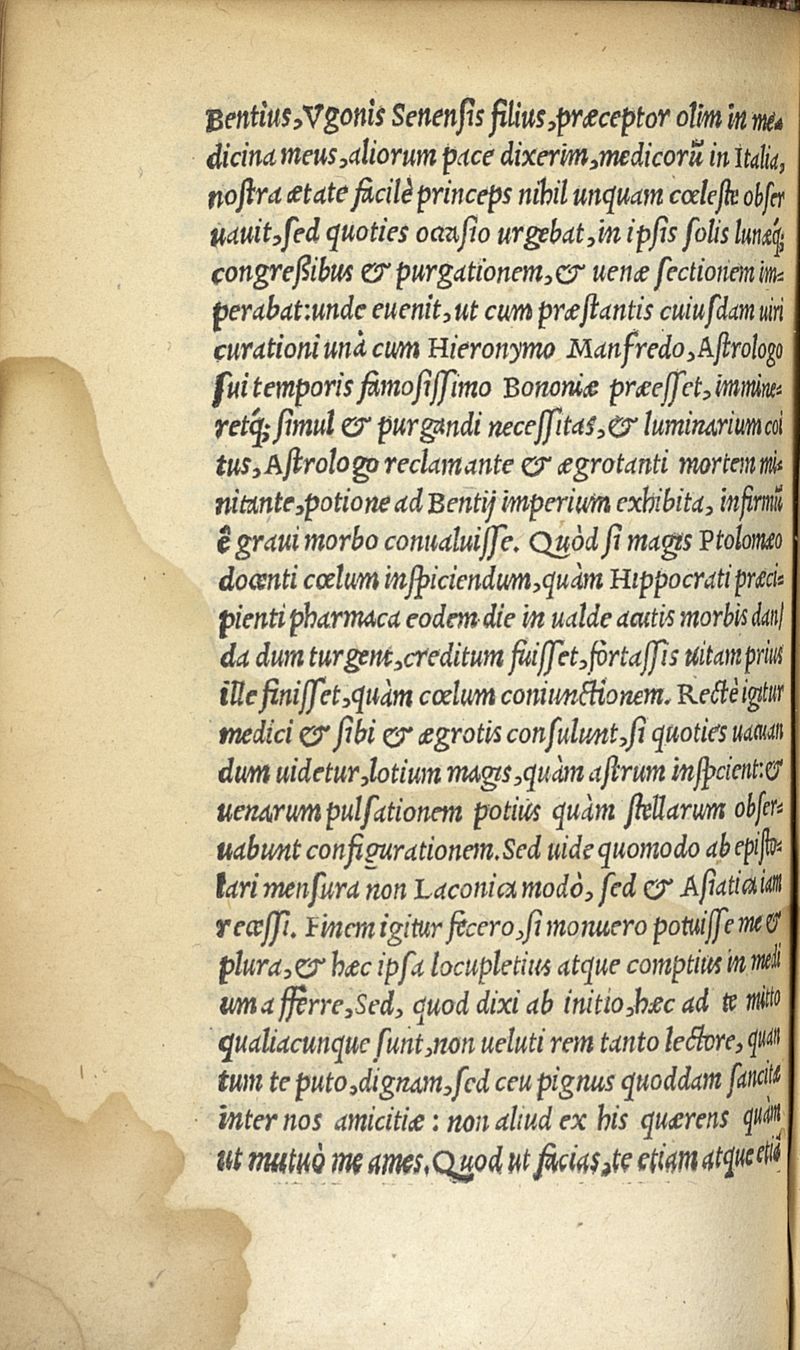 Bentius, Vgonis Senensis filius, præceptor olim in me-
dicina meus, aliorum pace dixerim, medicorũ in Italia,
nostra ætate facilè princeps nihil unquam cœleste obser
uauit, sed quoties occasio urgebat, in ipsis solis lunæq;
congreßibus & purgationem, & uenæ sectionem im-
perabat: unde euenit, ut cum præstantis cuiusdam uiri
curationi unà cum Hieronymo Manfredo, Astrologo
sui temporis famosissimo Bononiæ præesset, immine-
retq́; simul & purgandi necessitas, & luminarium coi
tus, Astrologo reclamante & ægrotanti mortem mi-
nitante, potione ad Bentij imperium exhibita, infirmũ
è graui morbo conualuisse. Quòd si magis Ptolomæo
docenti cœlum inspiciendum, quàm Hippocrati præci-
pienti pharmaca eodem die in ualde acutis morbis dan/
da dum turgent, creditum fuisset, fortassis uitam prius
ille finisset, quàm cœlum coniunctionem. Rectè igitur
medici & sibi & ægrotis consulunt, si quoties uacuan
dum uidetur, lotium magis, quàm astrum inspcient: &
uenarum pulsationem potius quàm stellarum obser-
uabunt configurationem. Sed uide quomodo ab episto-
lari mensura non Laconica modò, sed & Asiatica iam
recessi. Finem igitur fecero, si monuero potuisse me &
plura, & hæc ipsa locupletius atque comptius in medi
um afferre, Sed, quod dixi ab initio, hæc ad te mitto
qualiacunque sunt, non ueluti rem tanto lectore, quan
tum te puto, dignam, sed ceu pignus quoddam sancitæ
inter nos amicitiæ : non aliud ex his quærens quàm
ut mutuò me ames. Quod ut facias, te etiam atque etiã